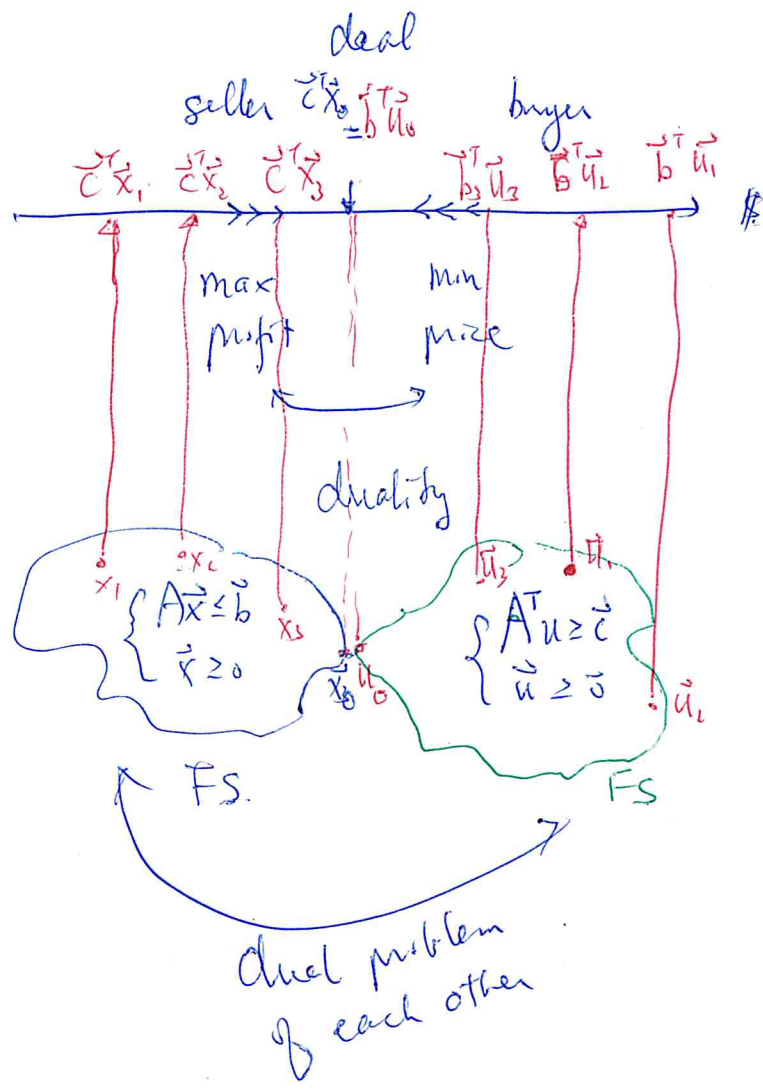 deal
seller c⃗ᵀx⃗₀ buyer
= b⃗ᵀu⃗₀
c⃗ᵀx⃗₁ c⃗ᵀx⃗₂ c⃗ᵀx⃗₃ b⃗₃ᵀu⃗₃ b⃗ᵀu⃗₂ b⃗ᵀu⃗₁
$
max min
profit prize
duality
x₁ x₂ x₃ u⃗₃ u⃗₁
{ Ax⃗ ≤ b⃗
x⃗ ≥ 0
x⃗₀ u₀
{ Aᵀu ≥ c⃗
u⃗ ≥ 0⃗
u⃗₂
FS. FS
dual problem
of each other